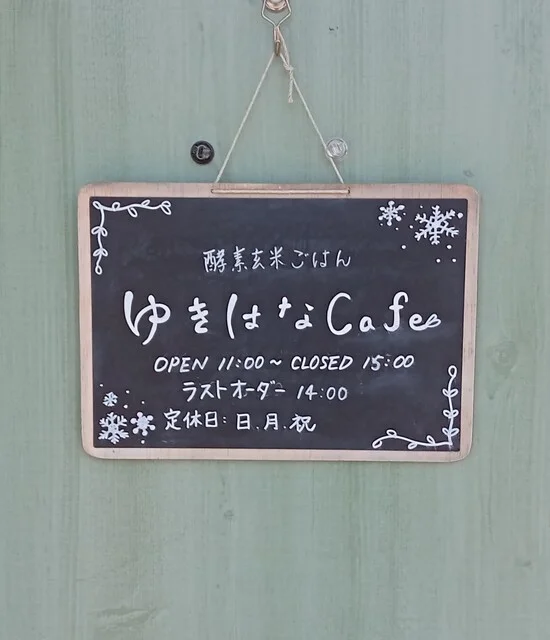 酵素玄米ごはん
ゆきはなCafe
OPEN 11:00~ CLOSED 15:00
ラストオーダー 14:00
定休日: 日.月.祝